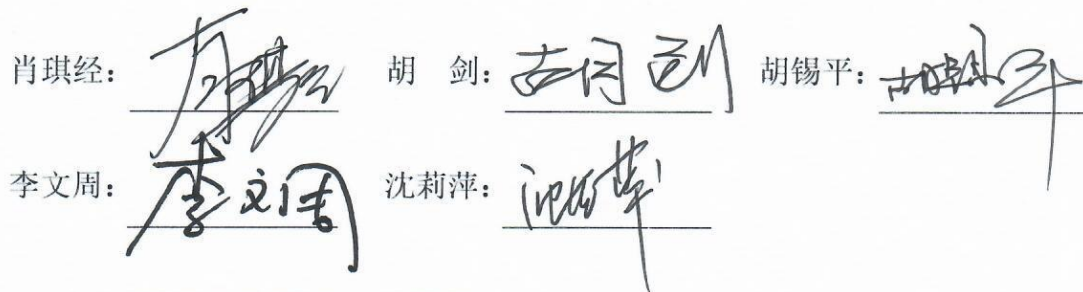 肖琪经： 肖琪经 胡 剑： 胡剑 胡锡平： 胡锡平
李文周： 李文周 沈莉萍： 沈莉萍